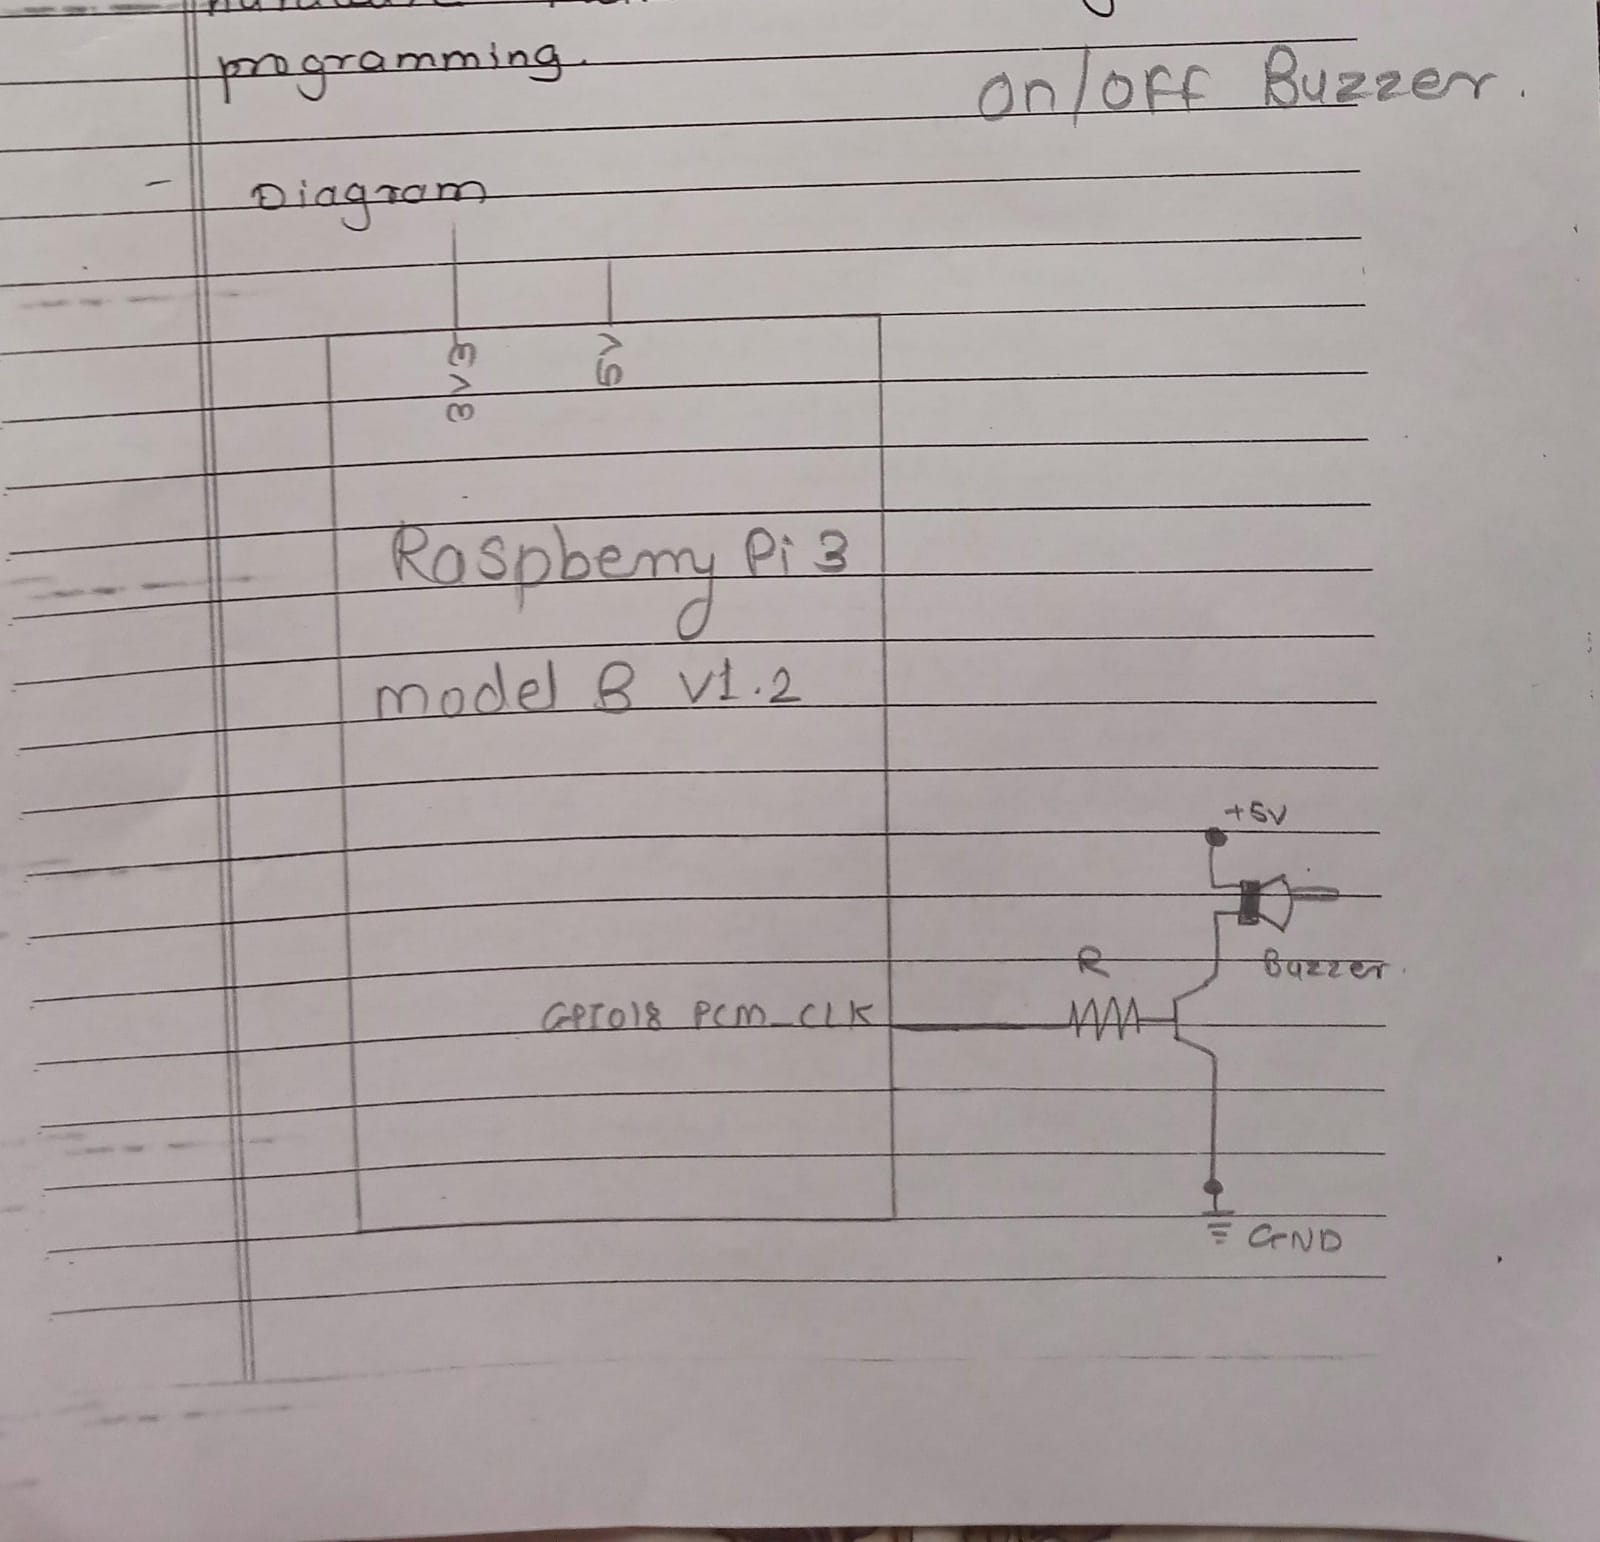 programming.
on/off Buzzer.
- Diagram
3V3 5V
Raspberry Pi 3
model B V1.2
+5V
R Buzzer.
GPIO18 PCM_CLK
GND